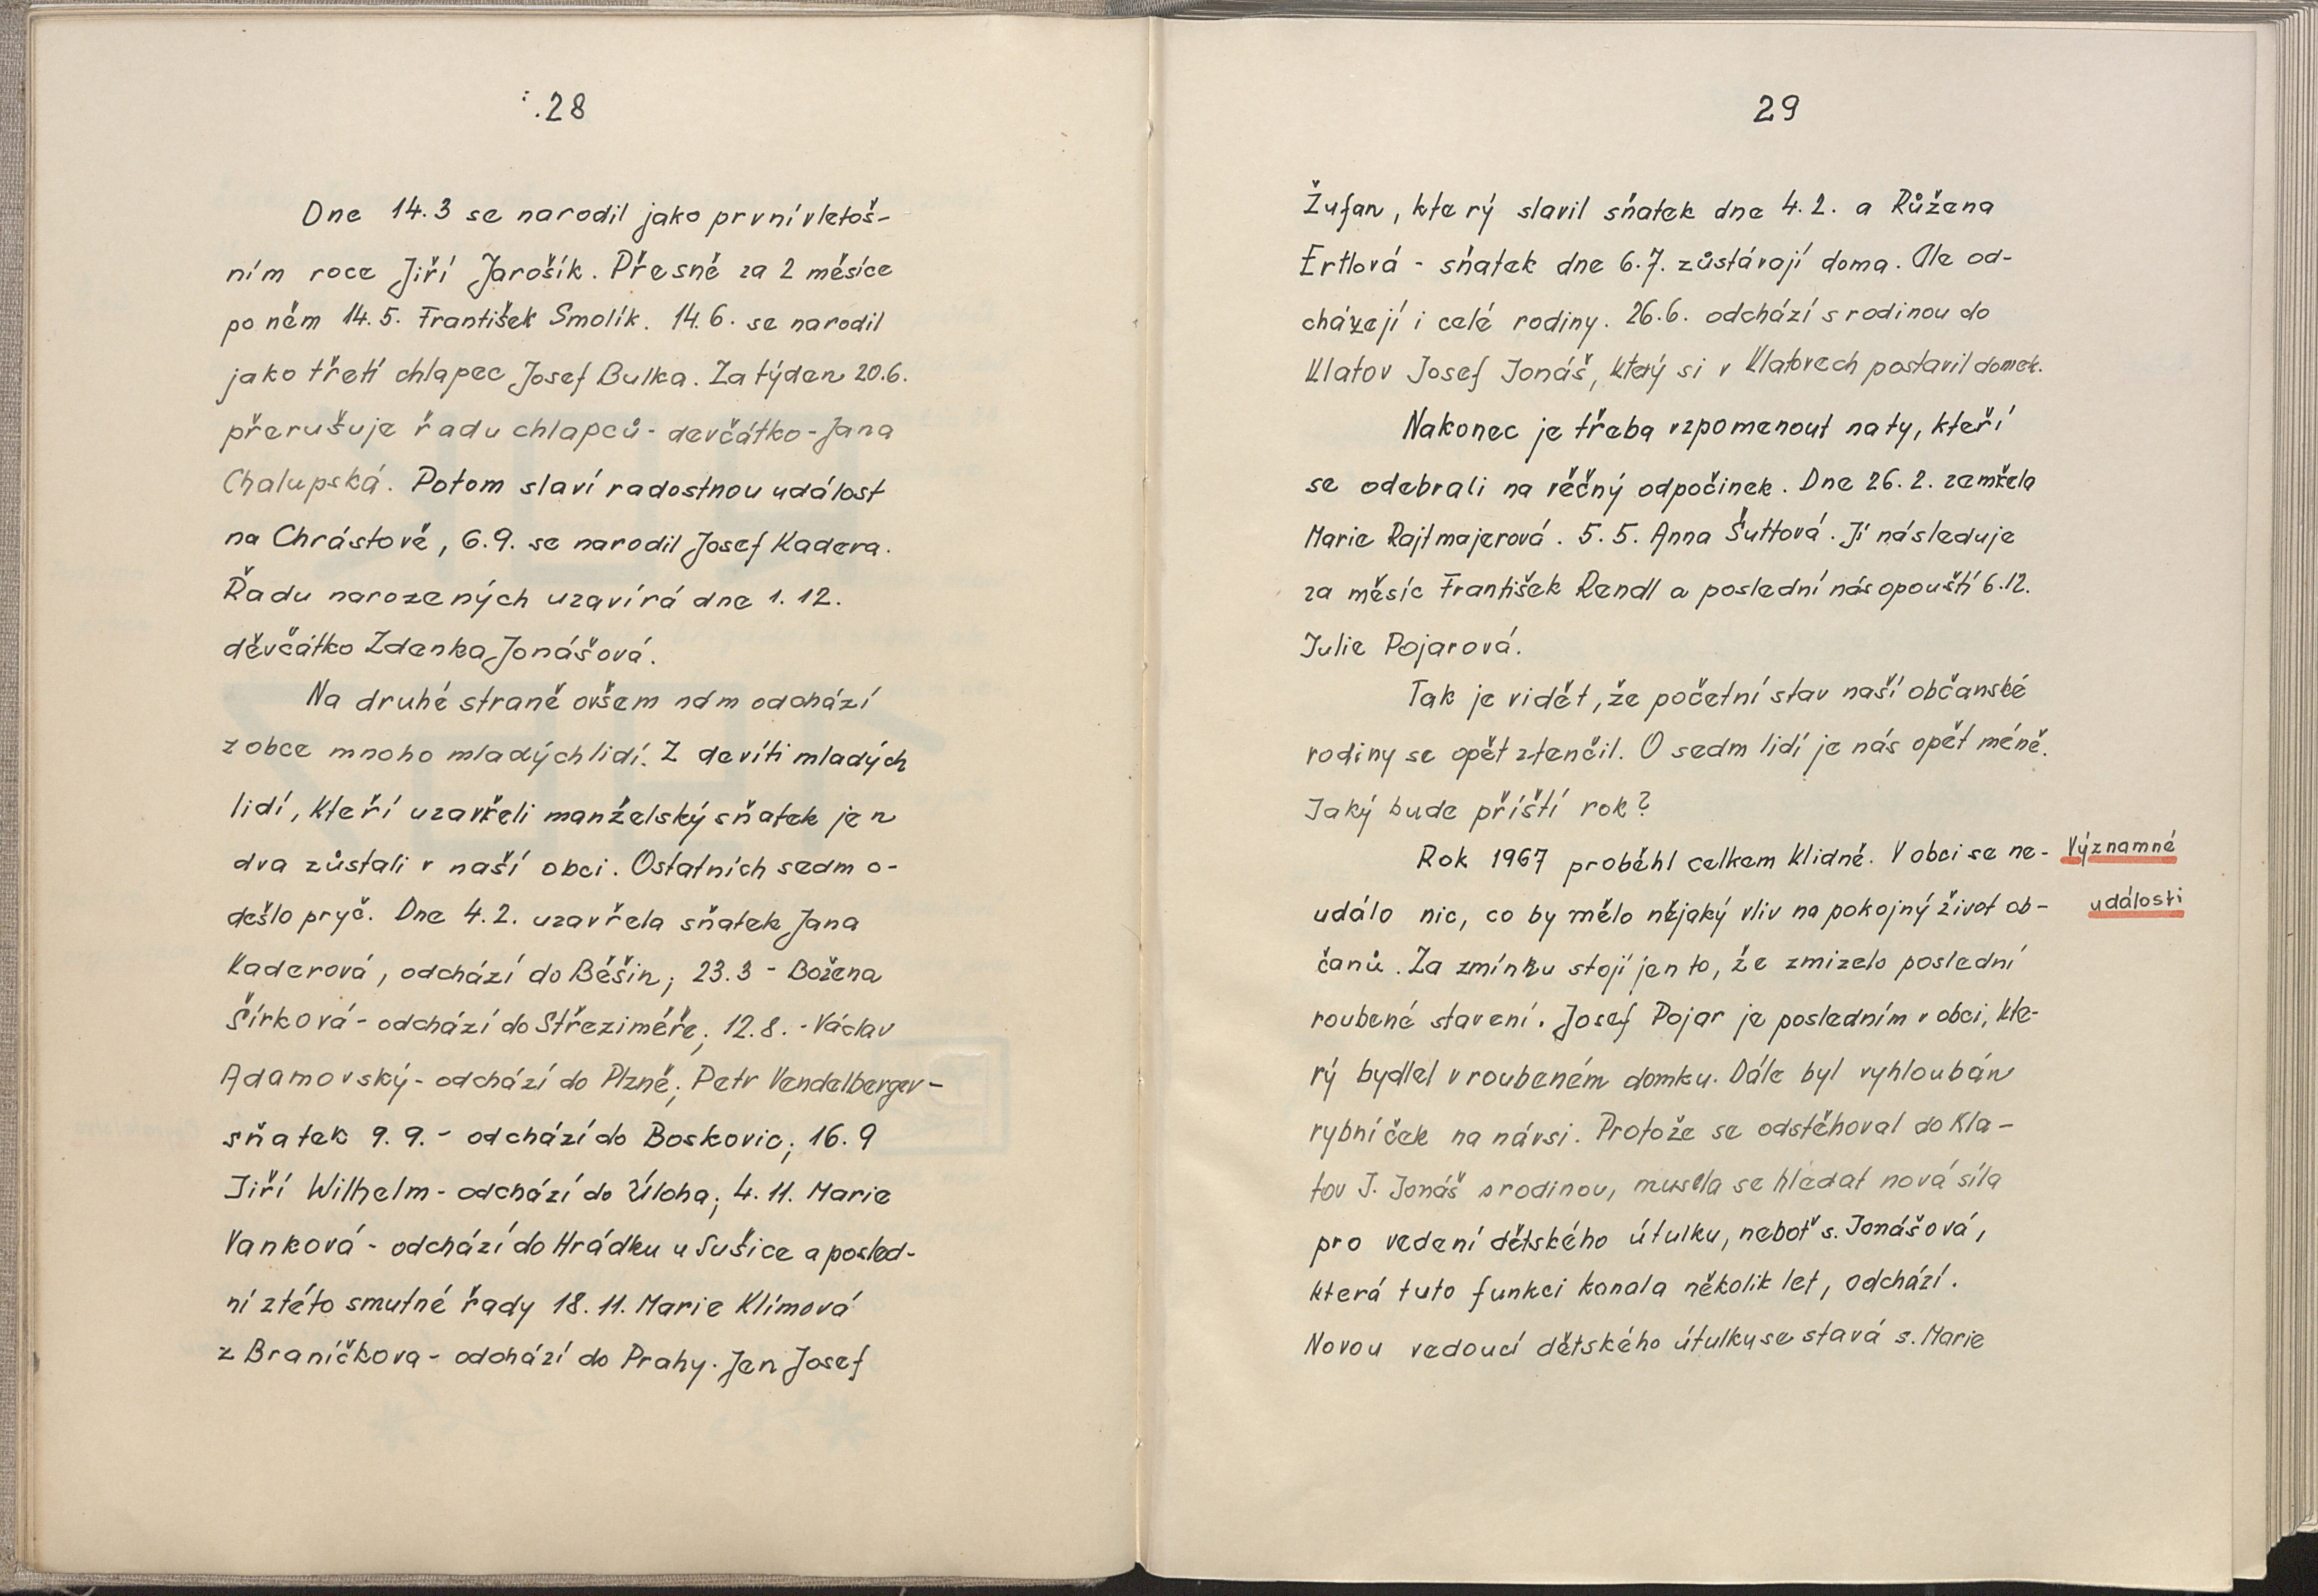 28
Dne 14.3 se narodil jako první v letoš-
ním roce Jiří Jarošík. Přesně za 2 měsíce
po něm 14.5. František Smolík. 14.6. se narodil
jako třetí chlapec Josef Bulka. Za týden 20.6.
přerušuje řadu chlapců - devčátko - Jana
Chalupská. Potom slaví radostnou událost
na Chrástově, 6.9. se narodil Josef Kadera.
Řadu narozených uzavírá dne 1. 12.
děvčátko Zdenka Jonášová.
Na druhé straně ovšem nám odchází
z obce mnoho mladých lidí. Z devíti mladých
lidí, kteří uzavřeli manželský sňatek jen
dva zůstali v naší obci. Ostatních sedm o-
dešlo pryč. Dne 4.2. uzavřela sňatek Jana
Kaderová, odchází do Běšin; 23.3 - Božena
Šírková - odchází do Střeziměře; 12.8. - Václav
Adamovský - odchází do Plzně; Petr Vendelberger -
sňatek 9. 9. - odchází do Boskovic; 16. 9
Jiří Wilhelm - odchází do Úloha; 4. 11. Marie
Vanková - odchází do Hrádku u Sušice a posled-
ní z této smutné řady 18. 11. Marie Klímová
z Braníčkova - odchází do Prahy. Jen Josef
29
Žufan, který slavil sňatek dne 4. 2. a Růžena
Ertlová - sňatek dne 6. 7. zůstávají doma. Ale od-
cházejí i celé rodiny. 26.6. odchází s rodinou do
Klatov Josef Jonáš, který si v Klatovech postavil domek.
Nakonec je třeba vzpomenout na ty, kteří
se odebrali na věčný odpočinek. Dne 26. 2. zemřela
Marie Rajtmajerová. 5. 5. Anna Šuttová. Jí následuje
za měsíc František Rendl a poslední nás opouští 6.12.
Julie Pojarová.
Tak je vidět, že početní stav naší občanské
rodiny se opět ztenčil. O sedm lidí je nás opět méně.
Jaký bude příští rok?
Rok 1967 proběhl celkem klidně. V obci se ne- Významné
událo nic, co by mělo nějaký vliv na pokojný život ob- události
čanů. Za zmínku stojí jen to, že zmizelo poslední
roubené stavení. Josef Pojar je posledním v obci, kte-
rý bydlel v roubeném domku. Dále byl vyhlouбán
rybníček na návsi. Protože se odstěhoval do Kla-
tov J. Jonáš s rodinou, musela se hledat nová síla
pro vedení dětského útulku, neboť s. Jonášová,
která tuto funkci konala několik let, odchází.
Novou vedoucí dětského útulku se stavá s. Marie